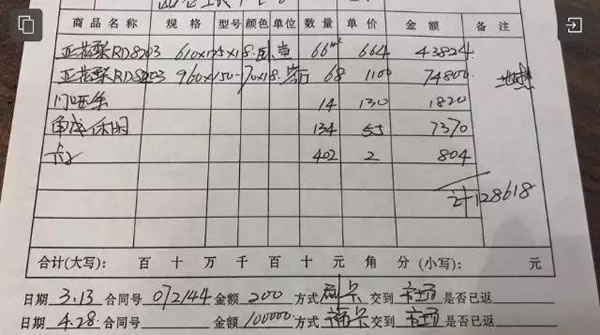 商品名称 规格 型号 颜色 单位 数量 单价 金额 备注
亚花梨RD8203 610x125x18 66m² 664 43824
亚花梨RD8203 960x150 70x18 68 1100 74800 地
14 130 1820
休闲 134 55 7370
402 2 804
计128618
合计(大写): 百 十 万 千 百 十 元 角 分 (小写): 元
日期 3.13 合同号 072144 金额 200 方式 刷卡 交到 是否已返
日期 4.28 合同号 金额 100000 方式 卡 交到 是否已返